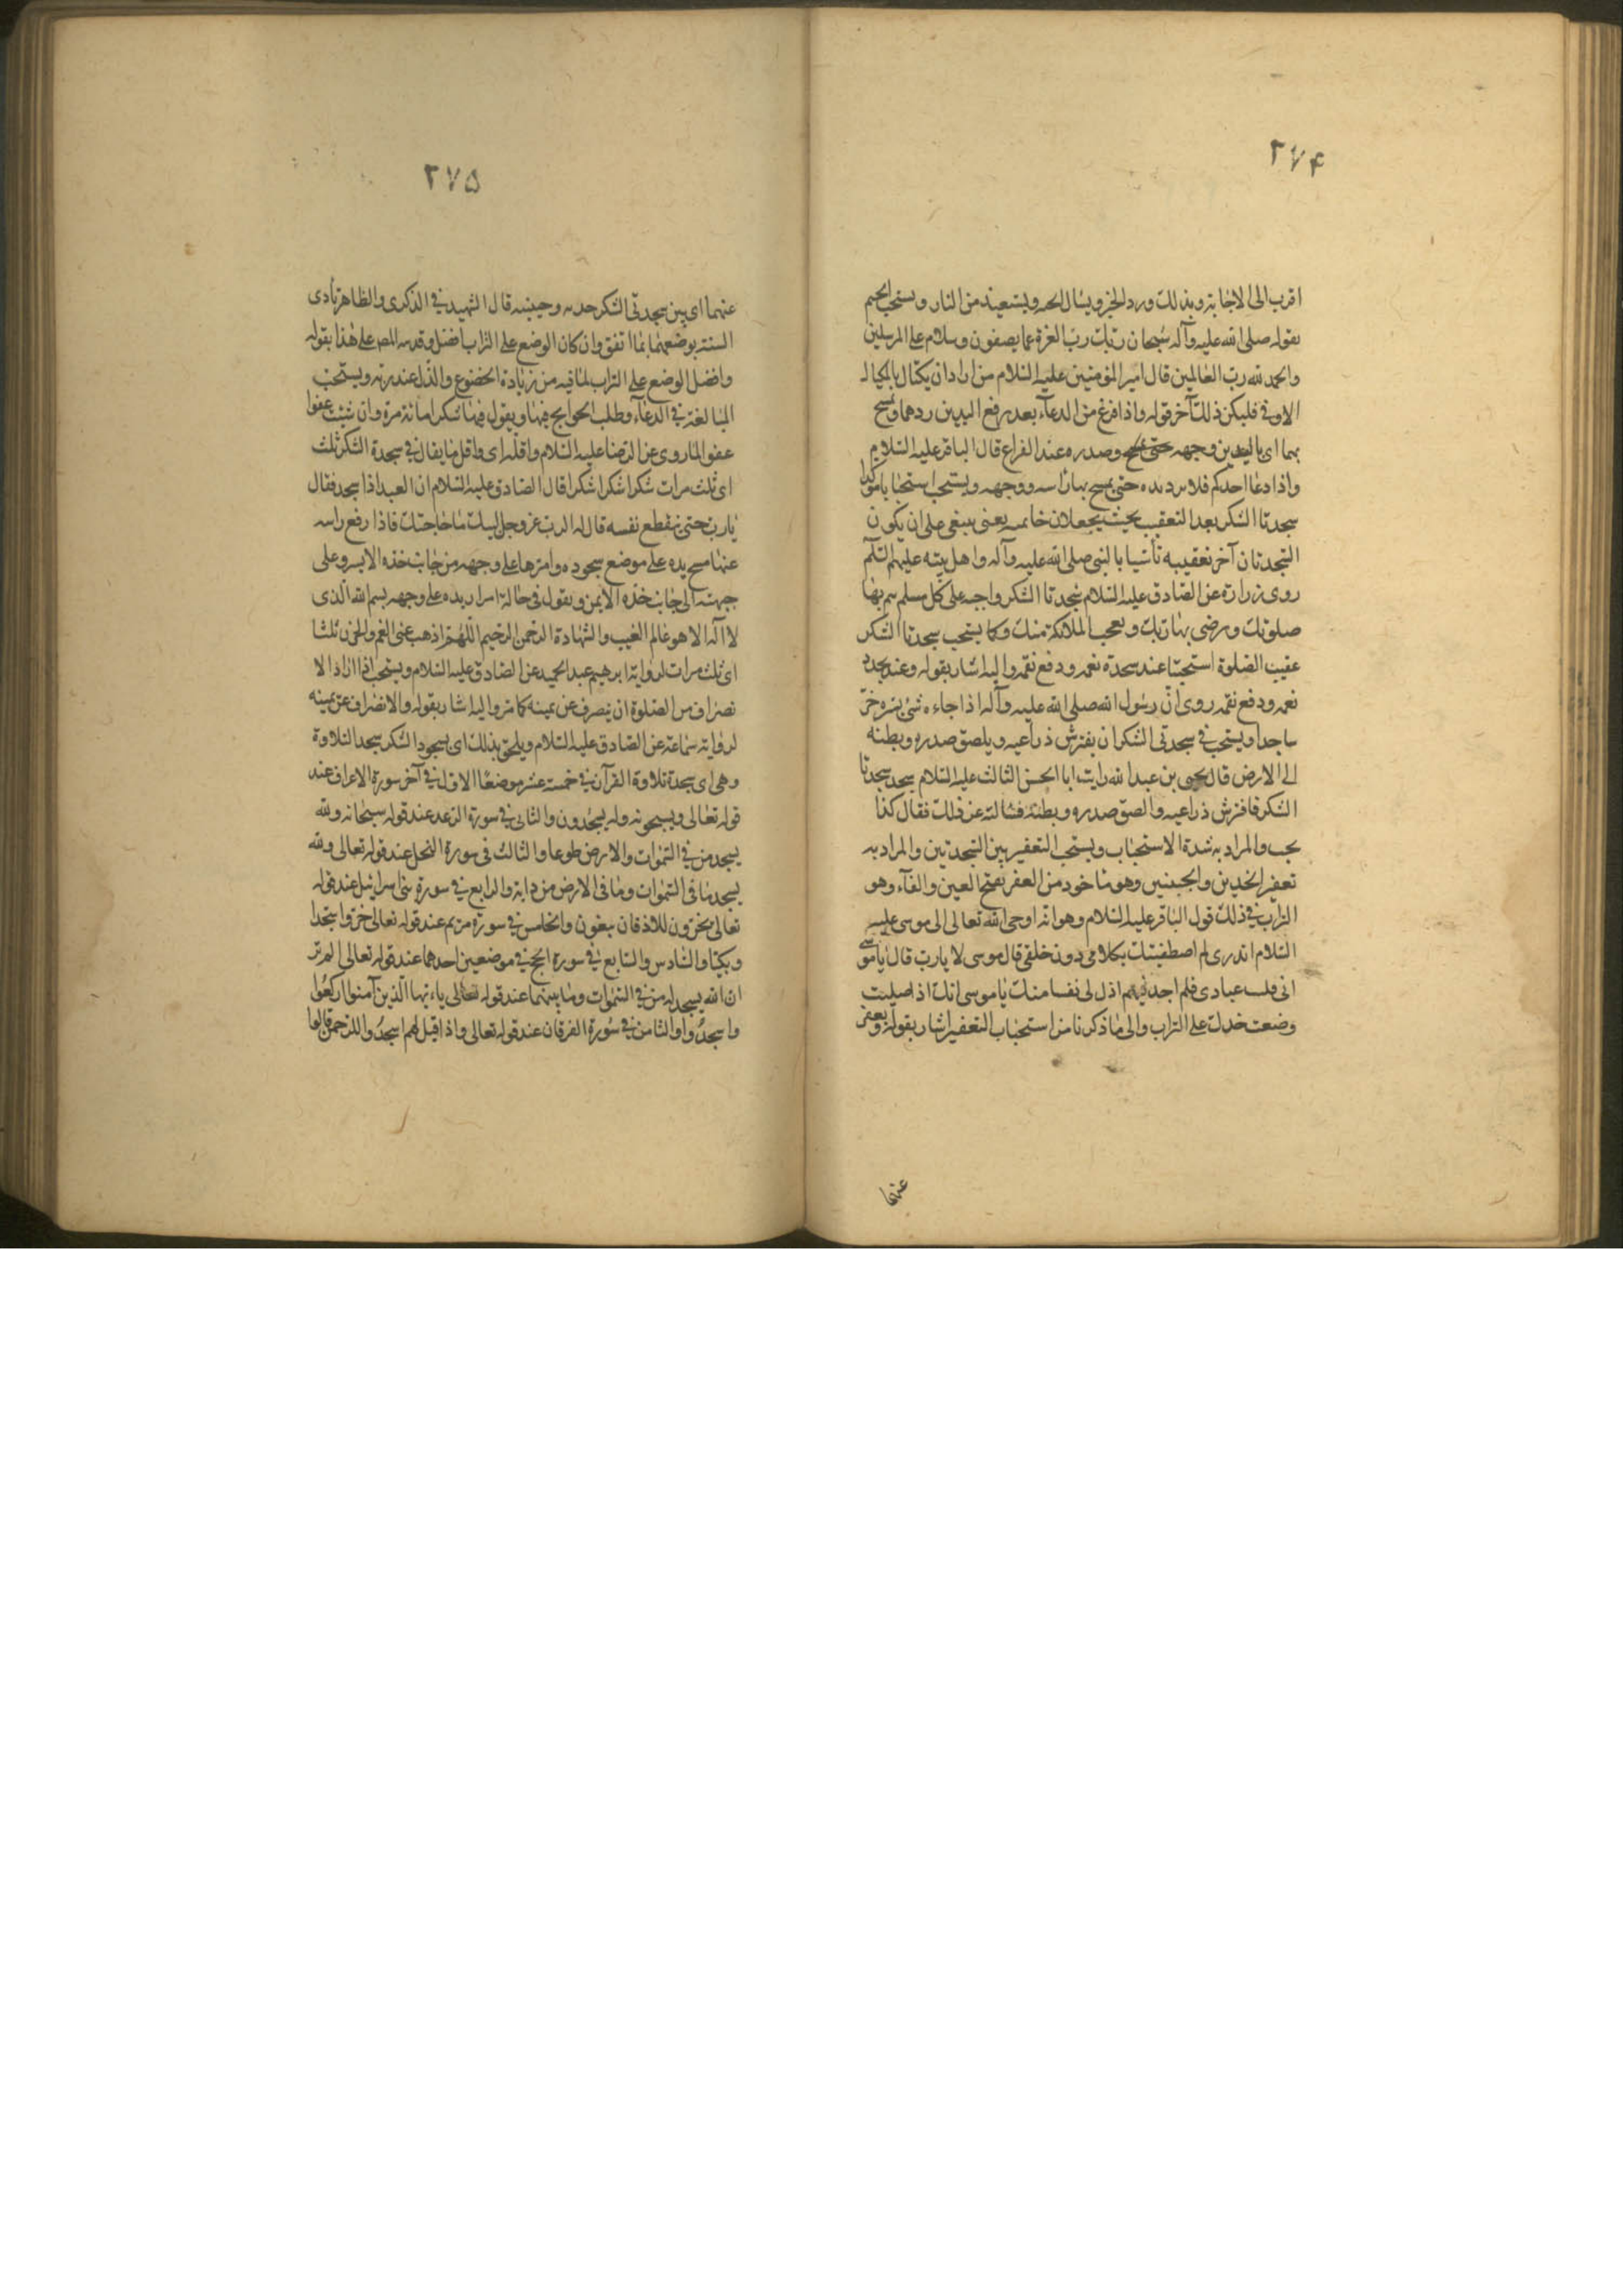 ٢٧۴
اقرب الى الاجابة وبذلك ورد الخبر ويسال الجنة ويستعيذ من النار ويستحب الختم
بقوله صلى الله عليه وآله سبحان ربك رب العزة عما يصفون وسلام على المرسلين
والحمد لله رب العالمين قال امير المؤمنين عليه السلام من اراد ان يكتال بالمكيال
الاوفى فليكن ذلك آخر قوله واذا فرغ من الدعاء بعد رفع اليدين ردهما ويمسح
بهما اى باليدين وجهه وصدره عند الفراغ قال الباقر عليه السلام
واذا دعا احدكم فلا يرد يده حتى يمسح بها راسه ووجهه ويستحب استحبابا مؤكدا
سجدتا الشكر بعد التعقيب بحيث يجعلان خاتمه يعنى ينبغى على ان يكون
السجدتان آخر تعقيبه تأسيا بالنبى صلى الله عليه وآله واهل بيته عليهم السلام
روى زرارة عن الصادق عليه السلام سجدتا الشكر واجبه على كل مسلم يتم بها
صلوتك وترضى بها ربك وتعجب الملائكة منك وكما يستحب سجدتا الشكر
عقيب الصلوة استحبتا عند تجدد نعمه ودفع نقمه واليه اشار بقوله وعند تجدد
نعمه ودفع نقمه روى ان رسول الله صلى الله عليه وآله اذا جاءه شئ يسره خر
ساجدا ويستحب فى سجدتى الشكر ان يفترش ذراعيه ويلصق صدره وبطنه
الى الارض قال يحيى بن عبد الله رايت ابا الحسن الثالث عليه السلام سجد سجدتا
الشكر فافترش ذراعيه والصق صدره وبطنه فسالته عن ذلك فقال كذا
يجب والمراد به شدة الاستحباب ويستحب التعفير بين السجدتين والمراد به
تعفير الخدين والجبينين وهو ماخوذ من العفر بفتح العين والفاء وهو
التراب فى ذلك قول الباقر عليه السلام وهو انه اوحى الله تعالى الى موسى عليه
السلام اتدرى لم اصطفيتك بكلامى دون خلقى قال موسى لا يا رب قال يا موسى
انى قلبت عبادى فلم اجد فيهم اذل لى نفسا منك يا موسى انك اذا صليت
وضعت خدك على التراب والى ما ذكرنا من استحباب التعفير اشار بقوله ويعفر
عنهما
٢٧۵
عنهما اى بين سجدتى الشكر خديه وجبينيه قال الشهيد فى الذكرى والظاهر تأدى
السنة بوضعهما بما اتفق وان كان الوضع على التراب افضل وقد نبه المص على هذا بقوله
وافضل الوضع على التراب لما فيه من زيادة الخضوع والذل عند ربه ويستحب
المبالغة فى الدعاء وطلب الحوايج فيها ويقول فيها شكرا مائة مرة وان شئت عفوا
عفوا لما روى عن الرضا عليه السلام واقله اى واقل ما يقال فى سجدة الشكر ثلث
اى ثلث مرات شكرا شكرا شكرا قال الصادق عليه السلام ان العبد اذا سجد فقال
يا رب حتى ينقطع نفسه قال له الرب عز وجل لبيك ما حاجتك فاذا رفع راسه
عنها مسح يده على موضع سجوده وامرها على وجهه من جانب خده الايسر وعلى
جبهته الى جانب خده الايمن ويقول فى حالة امرار يده على وجهه بسم الله الذى
لا اله الا هو عالم الغيب والشهادة الرحمن الرحيم اللهم اذهب عنى الغم والحزن ثلثا
اى ثلث مرات لرواية ابرهيم عبد الحميد عن الصادق عليه السلام ويستحب اذا اراد الا
نصراف من الصلوة ان ينصرف عن يمينه كما مر واليه اشار بقوله والانصراف عن يمينه
لرواية سماعة عن الصادق عليه السلام ويلحق بذلك اى بسجود الشكر سجد التلاوة
وهى اى سجدة تلاوة القرآن فى خمسة عشر موضعا الاول فى آخر سورة الاعراف عند
قوله تعالى ويسبحونه وله يسجدون والثانى فى سورة الرعد عند قوله سبحانه ولله
يسجد من فى السموات والارض طوعا والثالث فى سورة النحل عند قوله تعالى ولله
يسجد ما فى السموات وما فى الارض من دابة والرابع فى سورة بنى اسرائيل عند قوله
تعالى يخرون للاذقان يبغون والخامس فى سورة مريم عند قوله تعالى خروا سجدا
وبكيا والسادس والسابع فى سورة الحج فى موضعين احدهما عند قوله تعالى الم تر
ان الله يسجد له من فى السموات وما بينهما عند قوله تعالى ياءيها الذين آمنوا اركعوا
واسجدوا والثامن فى سورة الفرقان عند قوله تعالى واذا قيل لهم اسجدوا للرحمن قالوا